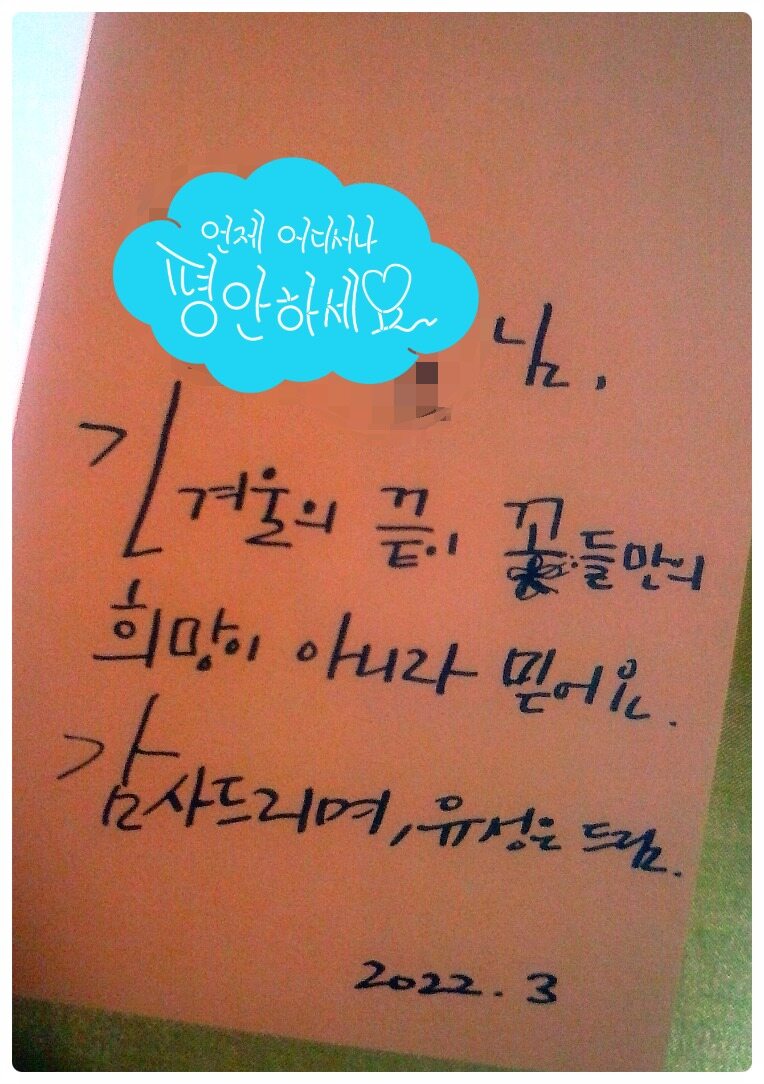 언제 어디서나
평안하세요
님.
긴 겨울의 끝이 꽃들만의
희망이 아니라 믿어요.
감사드리며, 유성은 드림.
2022. 3